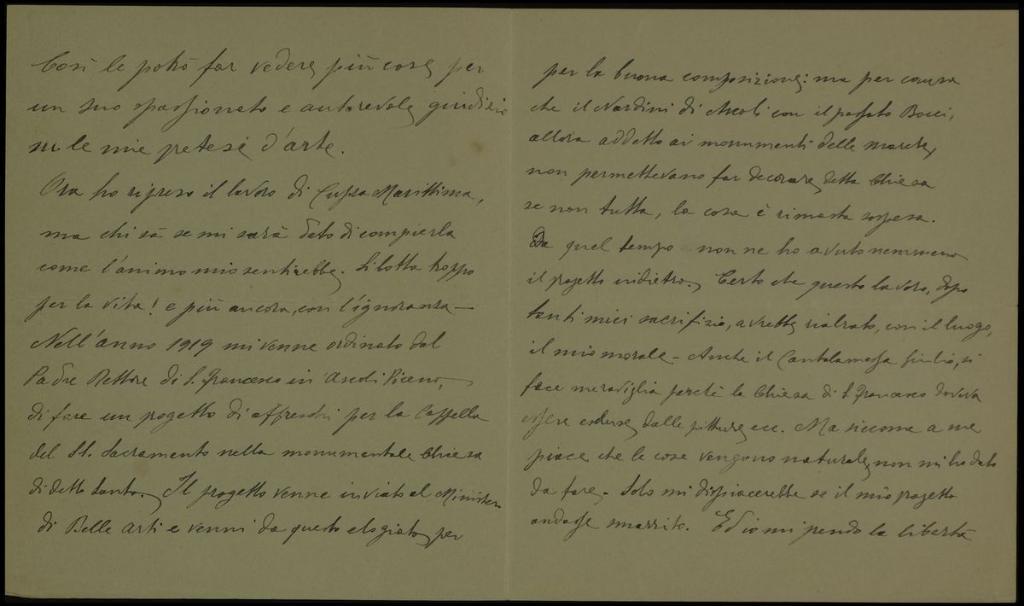 Così le potrò far vedere più cose per
un suo spassionato e autorevole giudizio
su le mie pretese d'arte.
Ora ho ripreso il lavoro di Cupra Marittima,
ma chi sà se mi sarà dato di compierla
come l'animo mio sentirebbe. Si lotta troppo
per la vita! e più ancora, con l'ignoranza —
Nell'anno 1919 mi venne ordinato dal
Padre Rettore di S. Francesco in Ascoli Piceno,
di fare un progetto di affreschi per la Cappella
del SS. Sacramento nella monumentale Chiesa
di detto Santo. Il progetto venne inviato al Ministero
di Belle Arti e venni da questo elogiato, per
per la buona composizione: ma per causa
che il Nardini di Ascoli con il passato Bocci,
allora addetto ai monumenti delle marche,
non permettevano far decorare detta Chiesa
se non tutta, la cosa è rimasta sospesa.
Da quel tempo non ne ho avuto nemmeno
il progetto indietro. Certo che questo lavoro, dopo
tanti miei sacrifizi, avrebbe rialzato, con il luogo,
il mio morale — Anche il Cantalamessa Giulio, si
fece meraviglia perchè la Chiesa di S. Francesco doveva
essere esclusa dalle pitture ecc. Ma siccome a me
piace che le cose vengono naturale, non mi ho dato
da fare. Solo mi dispiacerebbe se il mio progetto
andasse smarrito. Ed io mi prendo la libertà